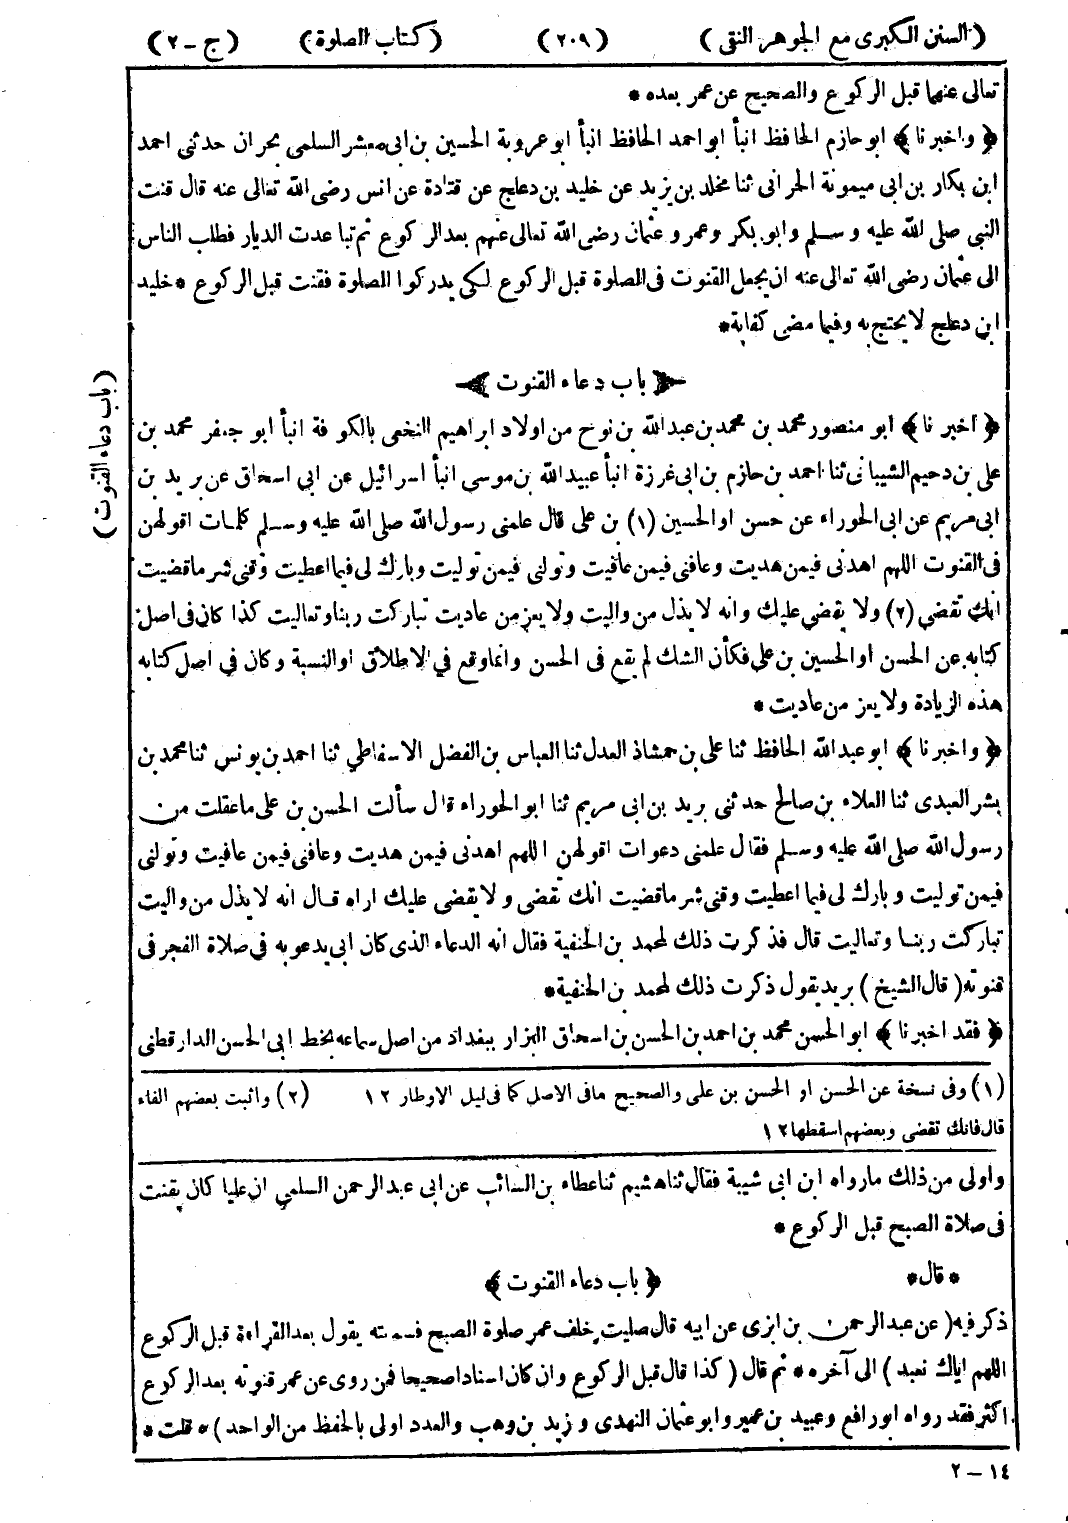 (السنن الكبرى مع الجوهر النقى) (٢٠٩) (كتاب الصلوة) (ج-٢)
تعالى عنهما قبل الركوع والصحيح عن عمر بعده *
﴿ واخبرنا ﴾ ابو حازم الحافظ انبأ ابو احمد الحافظ انبأ ابو عروبة الحسين بن ابى معشر السلمى بحران حدثنى احمد
ابن بكار بن ابى ميمونة الحرانى ثنا مخلد بن يزيد عن خليد بن دعلج عن قتادة عن انس رضى الله تعالى عنه قال قنت
النبى صلى الله عليه وسلم وابو بكر وعمر وعثمان رضى الله تعالى عنهم بعد الركوع ثم تباعدت الديار فطلب الناس
الى عثمان رضى الله تعالى عنه ان يجعل القنوت فى الصلوة قبل الركوع لكى يدركوا الصلوة فقنت قبل الركوع * خليد
ابن دعلج لا يحتج به وفيما مضى كفاية *
﴿ باب دعاء القنوت ﴾
(باب دعاء القنوت)
﴿ اخبرنا ﴾ ابو منصور محمد بن محمد بن عبدالله بن نوح من اولاد ابراهيم النخعى بالكوفة انبأ ابو جعفر محمد بن
على بن دحيم الشيبانى ثنا احمد بن حازم بن ابى غرزة انبأ عبيدالله بن موسى انبأ اسرائيل عن ابى اسحاق عن بريد بن
ابى مريم عن ابى الحوراء عن حسن او الحسين (١) بن على قال علمنى رسول الله صلى الله عليه وسلم كلمات اقولهن
فى القنوت اللهم اهدنى فيمن هديت وعافنى فيمن عافيت وتولنى فيمن توليت وبارك لى فيما اعطيت وقنى شر ما قضيت
انك تقضى (٢) ولا يقضى عليك وانه لا يذل من واليت ولا يعز من عاديت تباركت ربنا وتعاليت كذا كان فى اصل
كتابه عن الحسن او الحسين بن على فكأن الشك لم يقع فى الحسن وانما وقع في الاطلاق او النسبة وكان في اصل كتابه
هذه الزيادة ولا يعز من عاديت *
﴿ واخبرنا ﴾ ابو عبدالله الحافظ ثنا على بن حمشاذ العدل ثنا العباس بن الفضل الاسفاطي ثنا احمد بن يونس ثنا محمد بن
بشر العبدى ثنا العلاء بن صالح حدثنى بريد بن ابى مريم ثنا ابو الحوراء قال سألت الحسن بن على ما عقلت من
رسول الله صلى الله عليه وسلم فقال علمنى دعوات اقولهن اللهم اهدنى فيمن هديت وعافنى فيمن عافيت وتولنى
فيمن توليت وبارك لى فيما اعطيت وقنى شر ما قضيت انك تقضى ولا يقضى عليك اراه قال انه لا يذل من واليت
تباركت ربنا وتعاليت قال فذكرت ذلك لمحمد بن الحنفية فقال انه الدعاء الذى كان ابى يدعو به فى صلاة الفجر فى
قنوته ( قال الشيخ ) بريد يقول ذكرت ذلك لمحمد بن الحنفية *
﴿ فقد اخبرنا ﴾ ابو الحسن محمد بن احمد بن الحسن بن اسحاق البزار ببغداد من اصل سماعه بخط ابى الحسن الدارقطنى
(١) وفى نسخة عن الحسن او الحسن بن على والصحيح مافى الاصل كما فى نيل الاوطار ١٢ (٢) واثبت بعضهم الفاء
قال فانك تقضى وبعضهم اسقطها ١٢
واولى من ذلك مارواه ابن ابى شيبة فقال ثنا هشيم ثنا عطاء بن السائب عن ابى عبد الرحمن السلمي ان عليا كان يقنت
فى صلاة الصبح قبل الركوع *
* قال * ﴿ باب دعاء القنوت ﴾
ذكر فيه ( عن عبد الرحمن بن ابزى عن ابيه قال صليت خلف عمر صلوة الصبح فسمعته يقول بعد القراءة قبل الركوع
اللهم اياك نعبد ) الى آخره * ثم قال ( كذا قال قبل الركوع وان كان اسنادا صحيحا فمن روى عن عمر قنوته بعد الركوع
اكثر فقد رواه ابو رافع وعبيد بن عمير وابو عثمان النهدى وزيد بن وهب والعدد اولى بالحفظ من الواحد ) * قلت *
١٤ - ٢